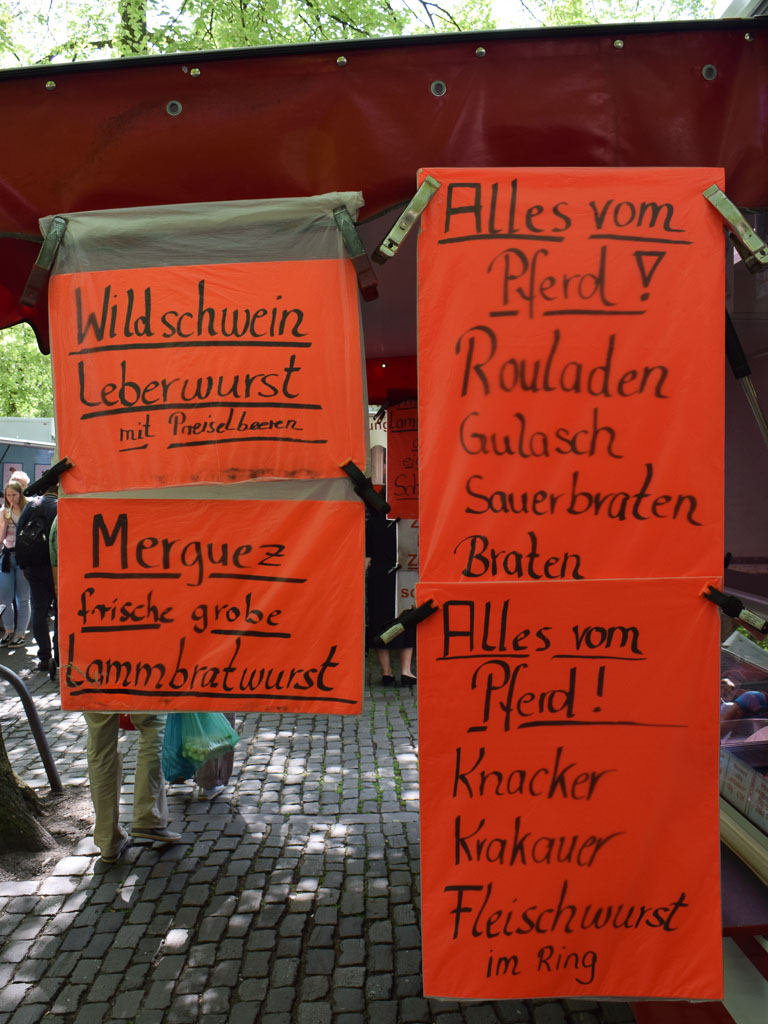 Wildschwein
Leberwurst
mit Preiselbeeren
Merguez
frische grobe
Lammbratwurst
Alles vom
Pferd !
Rouladen
Gulasch
Sauerbraten
Braten
Alles vom
Pferd !
Knacker
Krakauer
Fleischwurst
im Ring